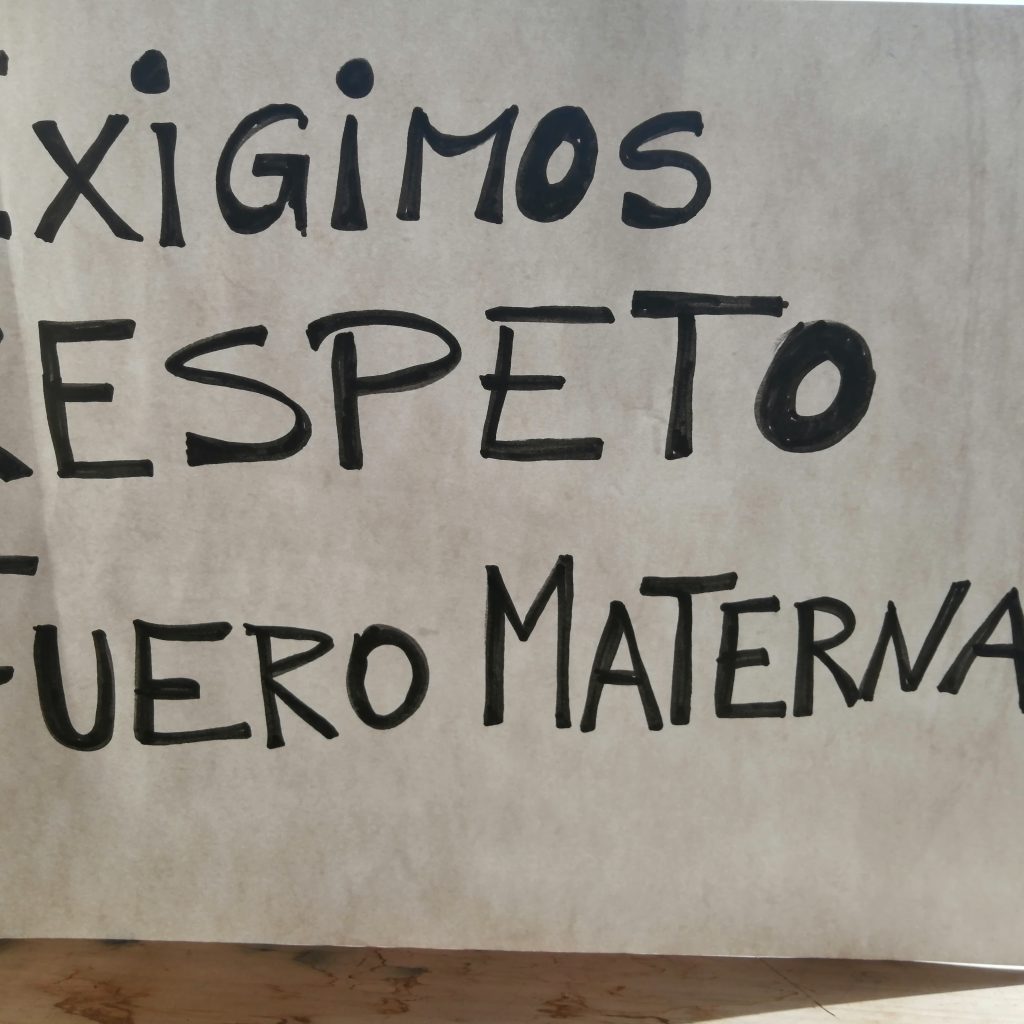 EXIGIMOS
RESPETO
FUERO MATERNA